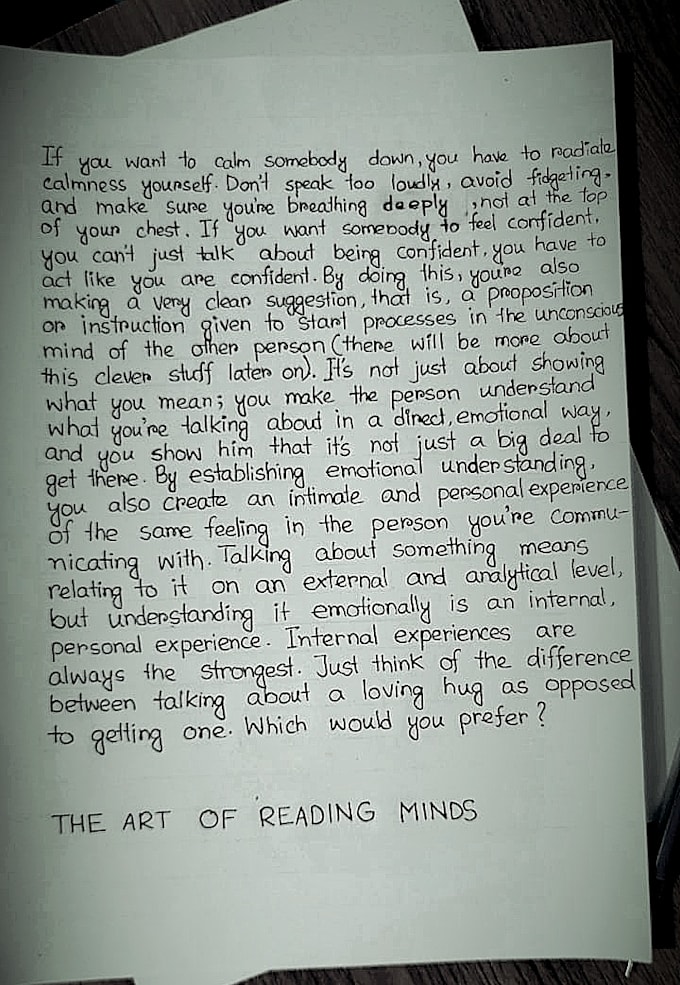 If you want to calm somebody down, you have to radiate
calmness yourself. Don't speak too loudly, avoid fidgeting.
and make sure you're breathing deeply , not at the top
of your chest. If you want somebody to feel confident,
you can't just talk about being confident, you have to
act like you are confident. By doing this, you're also
making a very clear suggestion, that is, a proposition
or instruction given to start processes in the unconscious
mind of the other person (there will be more about
this clever stuff later on). It's not just about showing
what you mean; you make the person understand
what you're talking about in a direct, emotional way,
and you show him that it's not just a big deal to
get there. By establishing emotional understanding,
you also create an intimate and personal experience
of the same feeling in the person you're commu-
nicating with. Talking about something means
relating to it on an external and analytical level,
but understanding it emotionally is an internal,
personal experience. Internal experiences are
always the strongest. Just think of the difference
between talking about a loving hug as opposed
to getting one. Which would you prefer?
THE ART OF READING MINDS